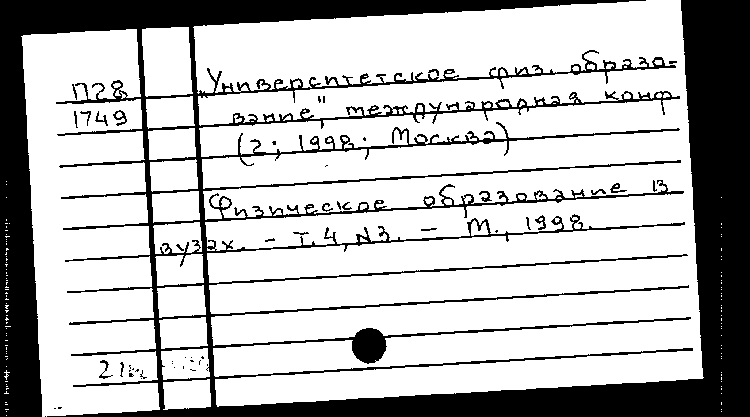 П28 „Университетское физ. образо=
1749 вание", международная конф
(2; 1998; Москва)
Физическое образование в
вузах. – Т.4, N3. – М., 1998.